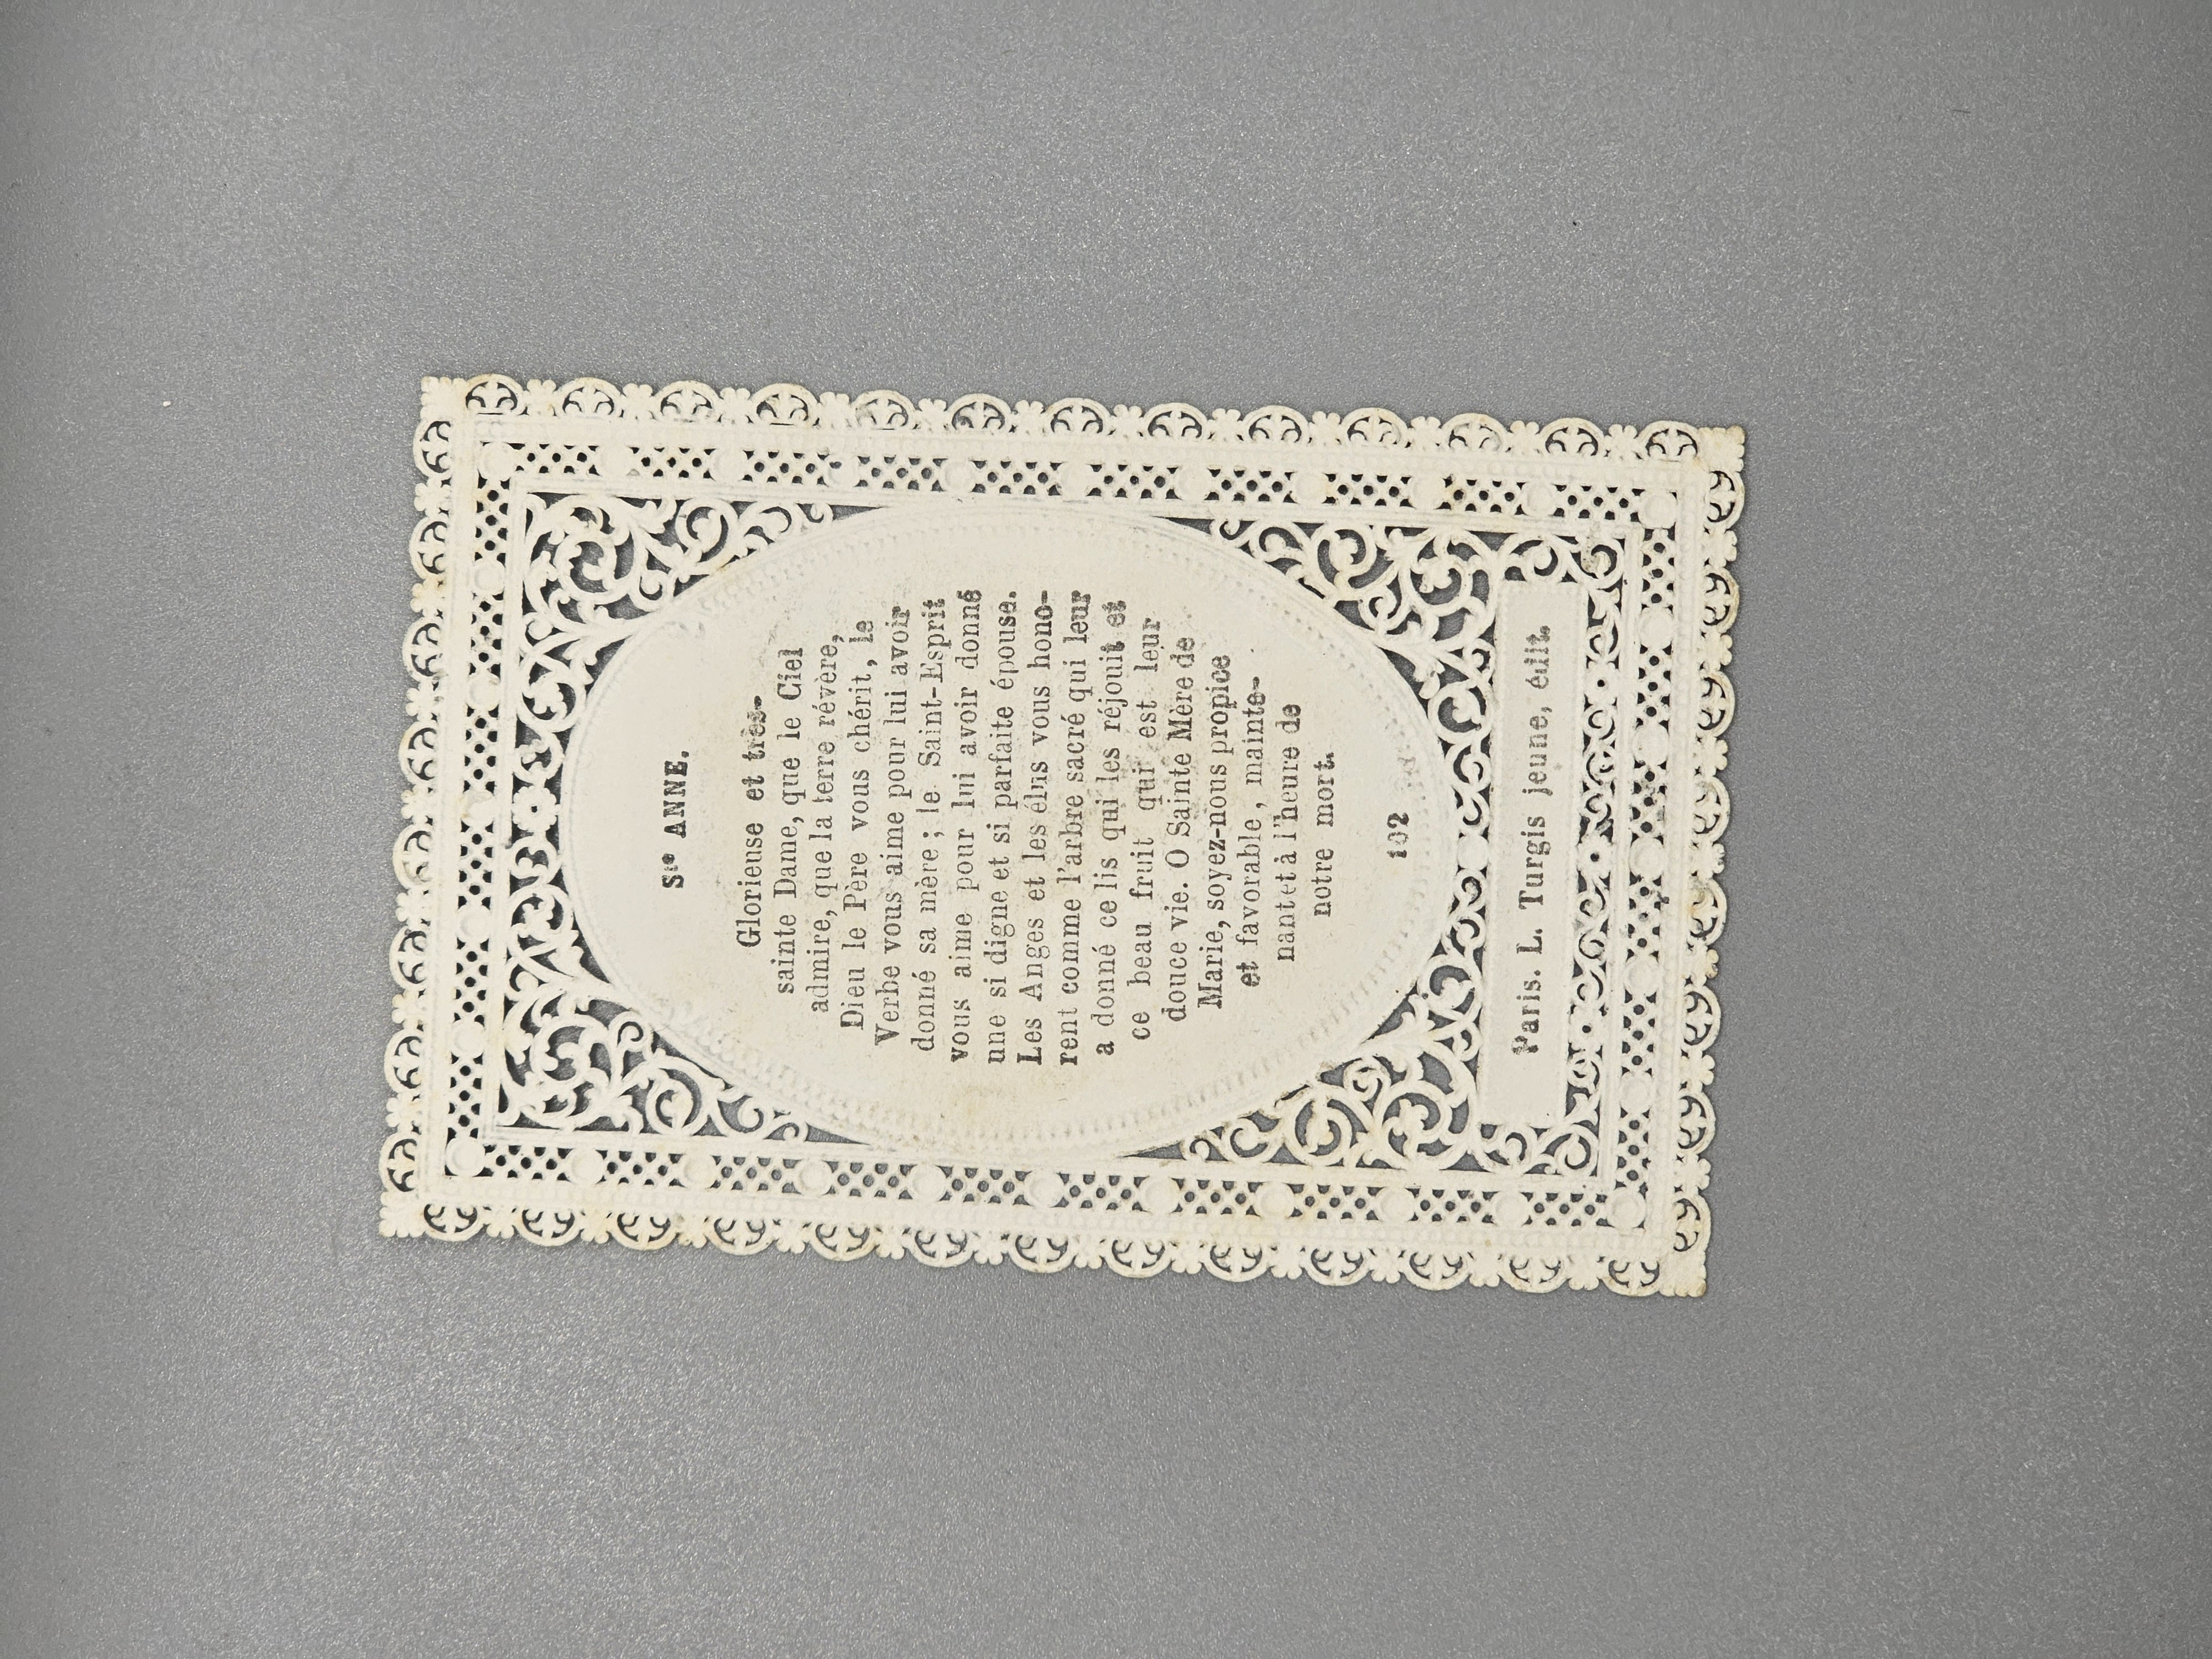 Ste ANNE.
Glorieuse et très-
sainte Dame, que le Ciel
admire, que la terre révère,
Dieu le Père vous chérit, le
Verbe vous aime pour lui avoir
donné sa mère; le Saint-Esprit
vous aime pour lui avoir donné
une si digne et si parfaite épouse.
Les Anges et les élus vous hono-
rent comme l'arbre sacré qui leur
a donné ce lis qui les réjouit et
ce beau fruit qui est leur
douce vie. O Sainte Mère de
Marie, soyez-nous propice
et favorable, mainte-
nant et à l'heure de
notre mort.
102
Paris. L. Turgis jeune, édit.